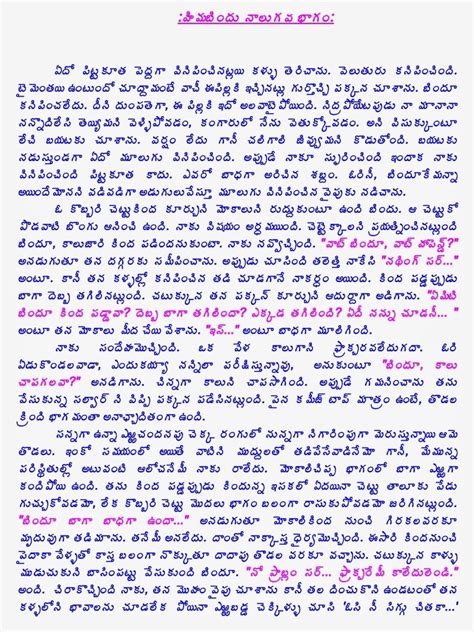 :హిమబిందు నాలుగవ భాగం:
ఏదో పిట్టకూత పెద్దగా వినిపించినట్లయి కళ్ళు తెరిచాను. వెలుతురు కనిపించింది.
టైమెంతయి ఉంటుందో చూద్దామంటే వాచీ ఈపిల్లకి ఇచ్చినట్లు గుర్తొచ్చి పక్కన చూశాను. బిందూ
కనిపించలేదు. దీని దుంపతెగా, ఈ పిల్లకి ఇదో అలవాటైపోయింది. నిద్రపోయేటపుడు నా మానానా
నన్నొదిలేసి తెయ్యమని వెళ్ళిపోవడం, కంగారులో నేను వెతుక్కోవడం. అని విసుక్కుంటూ
లేచి బయటకు చూశాను. వర్షం లేదు గానీ చలిగాలి జివ్వుమని కొడుతోంది. బయటకు
నడుస్తుండగా ఏదో మూలుగు వినిపించింది. అప్పుడే నాకూ స్ఫురించింది ఇందాక నాకు
వినిపించింది పిట్టకూత కాదు. ఎవరో బాధగా అరిచిన శబ్దం. ఓరినీ, బిందూకేమన్నా
అయిందేమోనని వడివడిగా అడుగులువేస్తూ మూలుగు వినిపించిన వైపుకు నడిచాను.
ఓ కొబ్బరి చెట్టుకింద కూర్చుని మోకాలుని రుద్దుకుంటూ ఉంది బిందు. ఆ చెట్టుకో
పొడవాటి బొంగు ఆనించి ఉంది. నాకు విషయం అర్థమయ్యింది. చెట్టెక్కాలని ప్రయత్నించినట్లుంది
బిందూ, కాలుజారి కింద పడిందనుకుంటా. నాకు నవ్వొచ్చింది. "వాట్ బిందూ, వాట్ హాపెన్డ్?"
అడుగుతూ తన దగ్గరకు సమీపించాను. అప్పుడు చూసింది తలెత్తి నాకేసి "నథింగ్ సర్..."
అంటూ. కానీ తన కళ్ళల్లో కనిపించిన తడి చూడగానే నాకర్థం అయింది. కింద పడ్డప్పుడు
బాగా దెబ్బ తగిలినట్లుంది. చటుక్కున తన పక్కన్ కూర్చుని ఆదుర్దాగా అడిగాను. "ఏమిటి
బిందూ కింద పడ్డావా? దెబ్బ బాగా తగిలిందా? ఎక్కడ తగిలింది? ఏదీ నన్ను చూడనీ... "
అంటూ తన మోకాలు మీద చేయి వేశాను. "ఇస్..." అంటూ బాధగా మూలిగింది.
నాకు సందేహమొచ్చింది. ఒక వేళ కాలుగాని ఫ్రాక్చరవలేదుగదా. ఓరి
ఏడుకొండలవాడా, ఎందుకయ్యా నన్నిలా పరీక్షిస్తున్నావు, అనుకుంటూ "బిందూ, కాలు
చాపగలవా?" అనడిగాను. చిన్నగా కాలుని చాపసాగింది. అప్పుడే గమనించాను తను
వేసుకున్న సల్వార్ ని విప్పి పక్కన పడేసినట్లుంది. పైన కమీజ్ టాప్ మాత్రం ఉంటే, తొడల
క్రింది భాగమంతా అనాచ్ఛాదితంగా ఉంది.
సన్నగా ఉన్నా ఎఱ్ఱచందనపు చెక్క రంగులో నున్నగా నిగారింపుగా మెరుస్తున్నాయి ఆమె
తొడలు. ఇంకో సమయంలో అయితే వాటిని ముద్దులతో తడిపేసేవాడినేమో గానీ, యేమున్న
పరిస్థితుల్లో అటువంటి ఆలోచనేమీ నాకు రాలేదు. మోకాలిచిప్ప భాగంలో బాగా ఎఱ్ఱగా
కందిపోయి ఉంది. తను కింద పడ్డప్పుడు కిందున్న ఇసకలో ఏదయినా చెట్టు తాలూకు పేడు
గుచ్చుకోవడమో, లేక కొబ్బరి చెట్టు మొదలు భాగం బలంగా రాసుకుపోవడమో జరిగినట్లుంది.
"బిందూ బాగా బాధగా ఉందా..." అనడుగుతూ మోకాలికింద నుంచి గిరకలవరకూ
మృదువుగా తడిమాను. తనేమీ అనలేదు. దాంతో నాక్కాస్త ధైర్యమొచ్చింది. ఈసారి కిందనుంచి
పైదాకా వేళ్ళతో కాస్త బలంగా నొక్కుతూ దాదాపు తొడల వరకూ వచ్చాను. చటుక్కున కాళ్ళు
ముడుచుకుని బాసింపట్టు వేసుకు కూర్చుంది బిందూ. "నో ప్రాబ్లం సర్... ఫ్రాక్చరేమీ కాలేదులెండి."
అంది. చిరాకొచ్చింది నాకు, తన మొహం వైపు చూశాను కానీ తల దించుకొని ఉండటంతో తన
కళ్ళలోని భావాలను చూడలేక పోయినా ఎఱ్ఱబడ్డ చెక్కిళ్ళు చూసి 'ఓసి నీ సిగ్గు చితకా...'